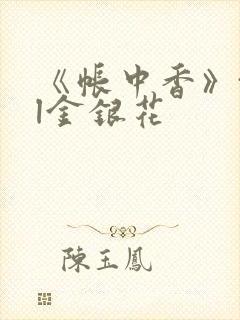 《帐中香》
1金银花
陳玉鳳